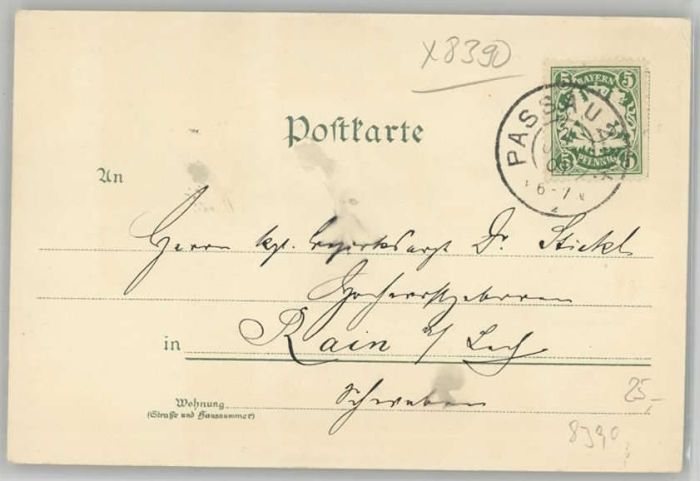 X8390
5 BAYERN 5
5 PFENNIG 5
PASSAU
6-7
Postkarte
An
Herrn kgl. Bezirksarzt Dr. Stickl
Hochwohlgeboren
in Rain a/ Lech
Schwaben
Wohnung
(Straße und Hausnummer)
25,-
8390